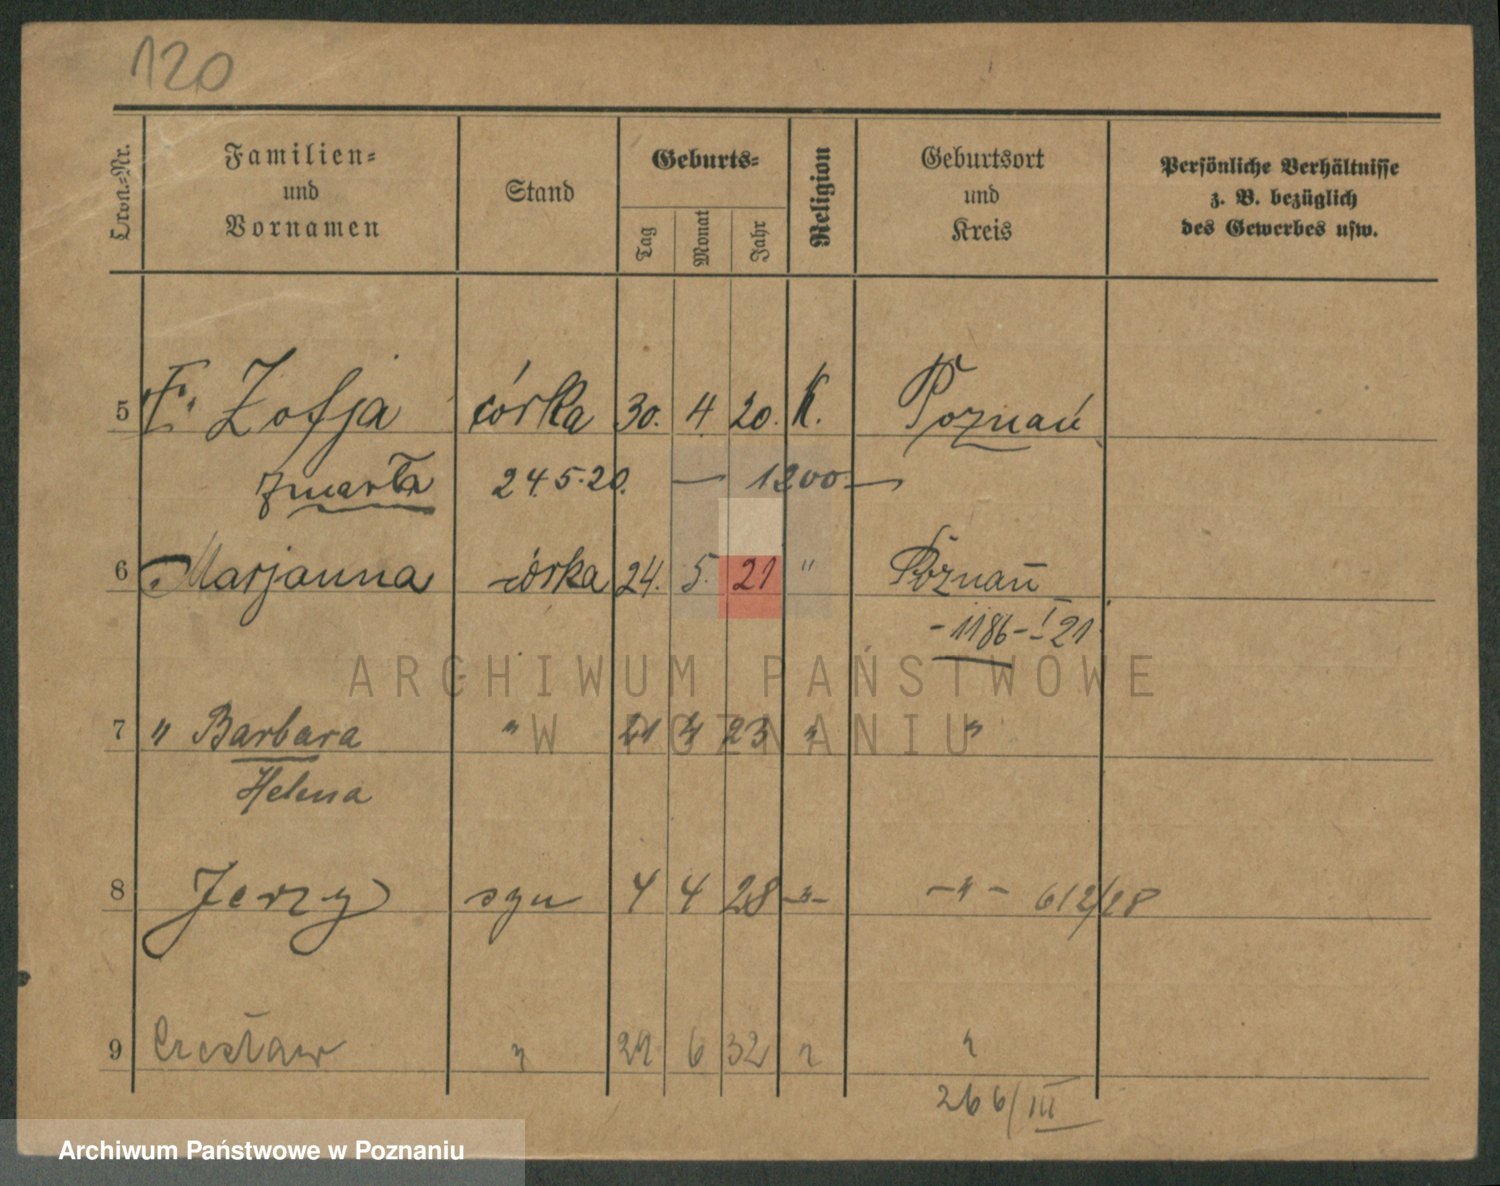 120
Lwd.-Nr. Familien- und Vornamen Stand Geburts- Tag Monat Jahr Religion Geburtsort und Kreis Persönliche Verhältnisse z. B. bezüglich des Gewerbes usw.
5 Zofja córka 30. 4 20. K. Poznań
zmarła 24.5.20. — 1200 —
6 Marjanna córka 24. 5. 21 " Poznań
- 1186 - I 21
ARCHIWUM PAŃSTWOWE
W POZNANIU
7 " Barbara " 21 4 23 " "
Helena
8 Jerzy syn 4 4 28 -"- -"- 612/28
9 Czesław " 29 6 32 " "
266/III
Archiwum Państwowe w Poznaniu